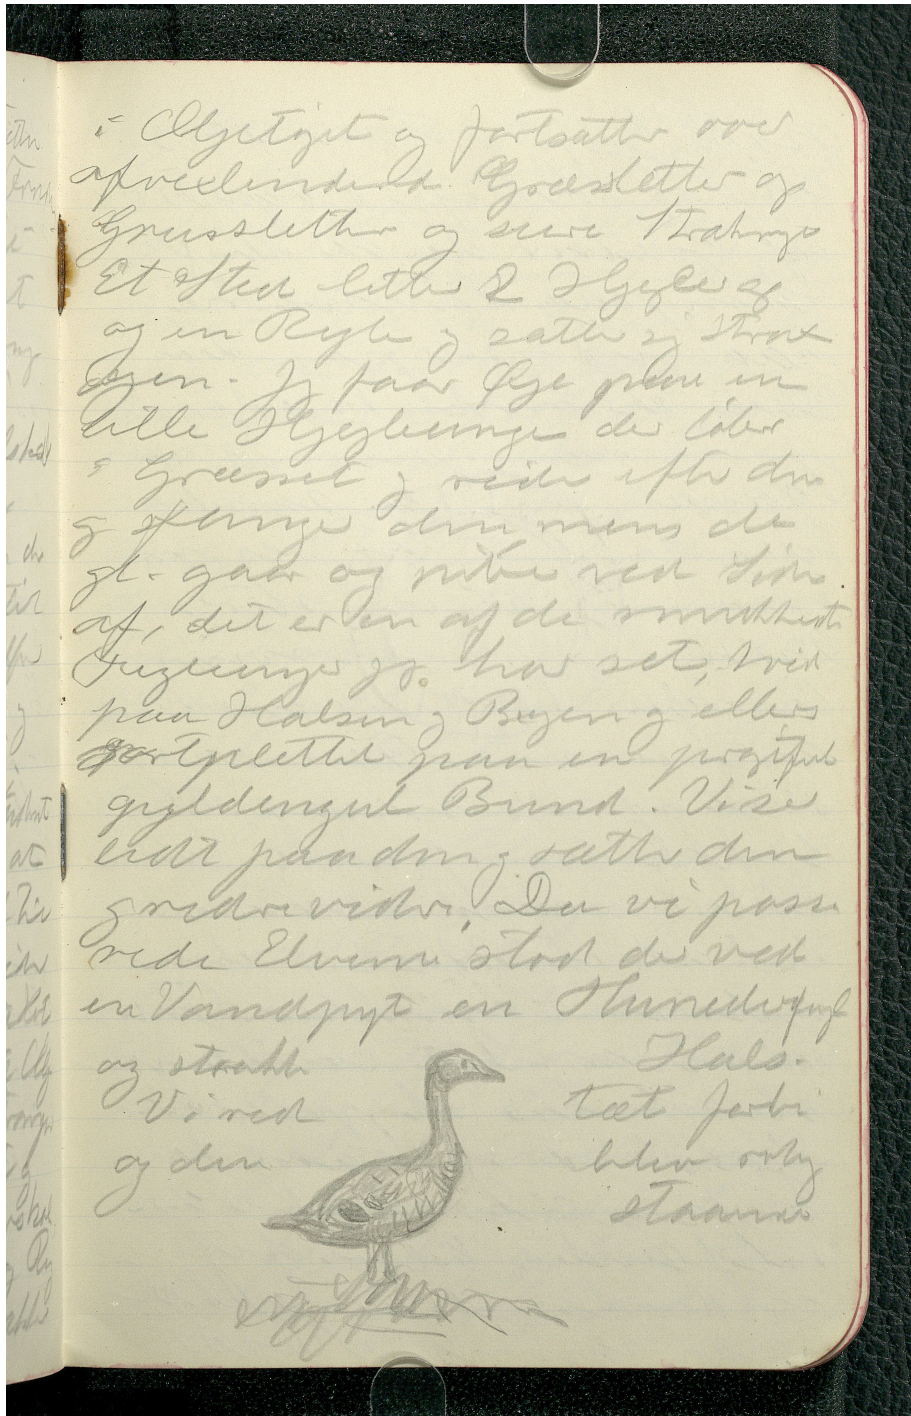 i Oljetøjet og fortsætter over
afvexlende Græssletter og
Grussletter og
Et Sted letter 2 Hjejler og
og en Ryle og sætter sig strax
igen. Jeg faar Øje paa en
lille Hjejleunge der løber
i Græsset og rider efter den
og fanger den mens de
gl. gaar og piber ved Siden
af, det er en af de smukkeste
Fugleunger jeg har set, hvid
paa Halsen og Bugen og ellers
sortplettet paa en prægtfuld
gyldengul Bund. Vi ser
lidt paa den og sætter den
og rider videre. Da vi passe
rede Elvene stod der ved
en Vandpyt en Hunedderfugl
og strakte Hals.
Vi red tæt forbi
og den blev rolig
staaende